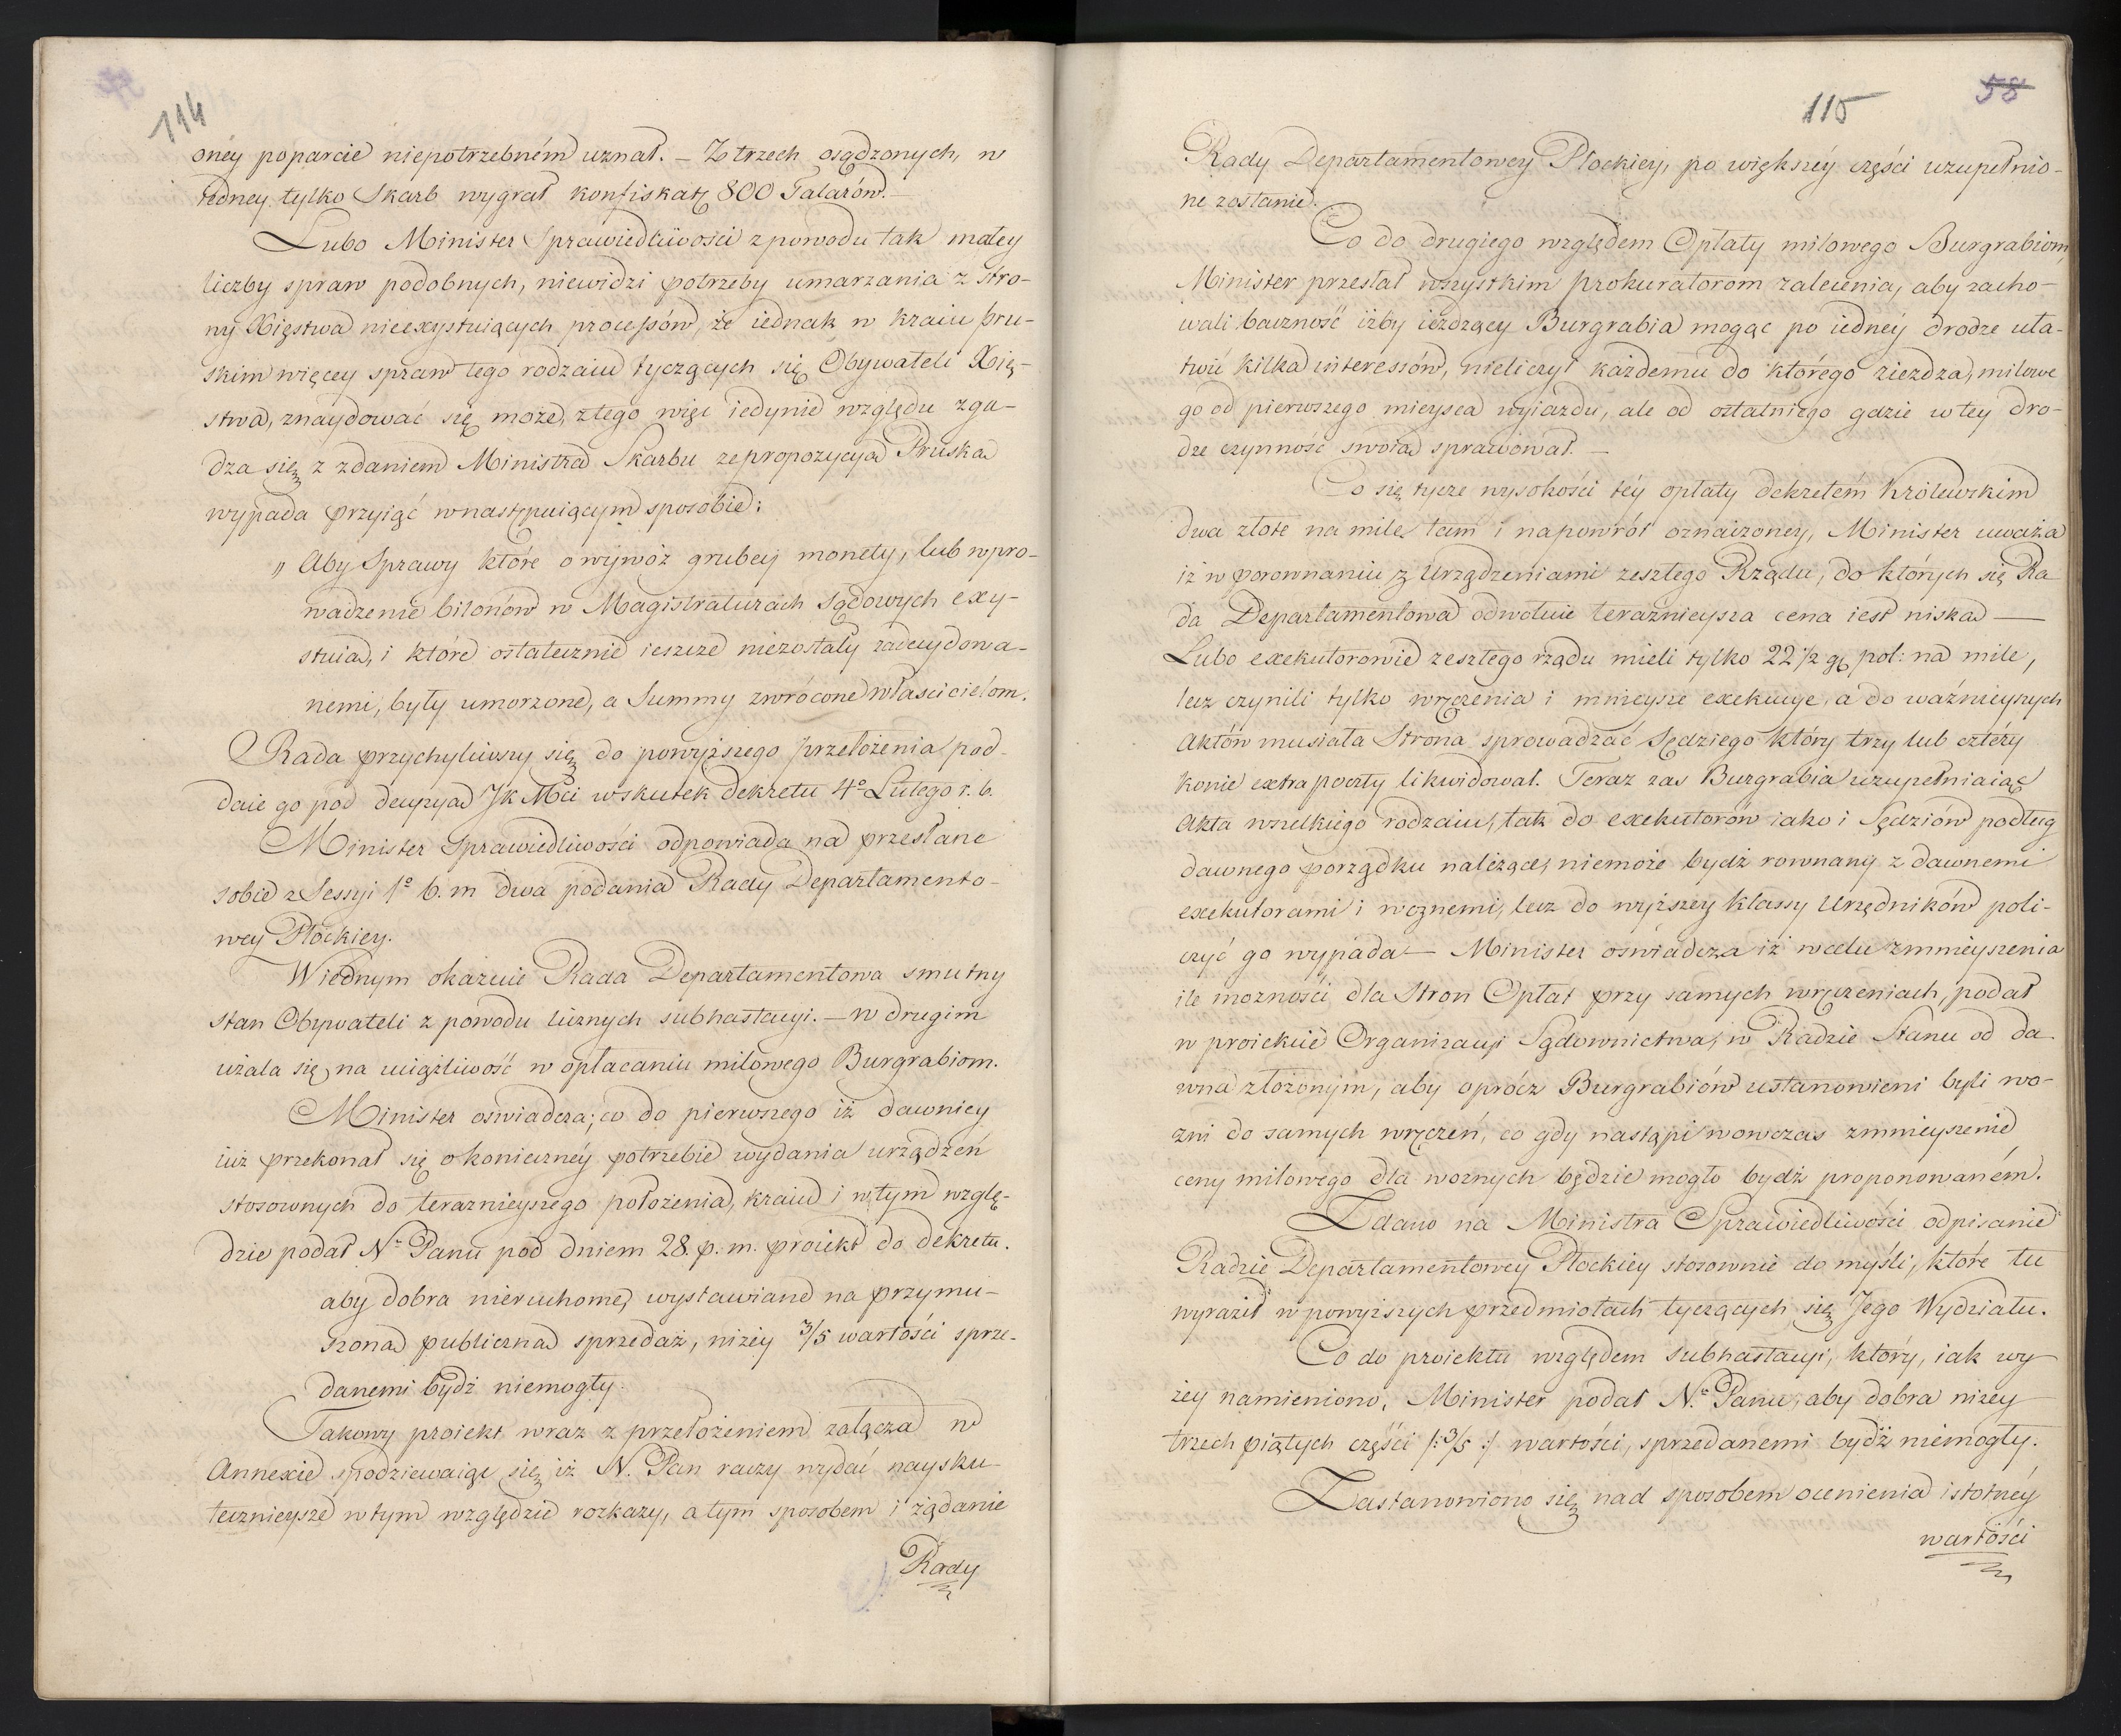 114
onéy poparcie niepotrzebném uznał. – Z trzech osądzonych, w
iedney tylko Skarb wygrał konfiskatę 800 Talarów. –
Lubo Minister Sprawiedliwości z powodu tak małey
liczby spraw podobnych, niewidzi potrzeby umarzania z stro-
ny Xięstwa nieexystuiących processów, że iednak w kraiu pru-
skim więcey spraw tego rodzaiu tyczących się Obywateli Xię-
stwa, znaydować się może, z tego więc iedynie względu zga-
dza się z zdaniem Ministra Skarbu że propozycya Pruska
wypada przyiąć w następuiącym sposobie:
„ Aby Sprawy które o wywóz grubey monety, lub wpro-
wadzenie bilonów w Magistraturach Sądowych exy-
stuia, i które ostatecznie ieszcze niezostały zadecydowa-
nemi, były umorzone, a Summy zwrócone właścicielom.
Rada przychyliwszy się do powyższego przełożenia pod-
daie go pod decyzya Jk Mci w skutek dekretu 4º Lutego r. b.
Minister Sprawiedliwości odpowiada na przesłane
sobie z Sessyi 1º b. m dwa podania Rady Departamento-
wey Płockiey.
W iednym okazuie Rada Departamentowa smutny
stan Obywateli z powodu licznych subhastacyi. – w drugim
użala się na uciążliwość w opłacaniu milowego Burgrabiom.
Minister oświadcza; co do pierwszego iż dawniey
iuż przekonał się o konieczney potrzebie wydania urządzeń
stosownych do teraznieyszego położenia, kraiu i w tym wzglę-
dzie podał N. Panu pod dniem 28. p. m. proiekt do dekretu.
aby dobra nieruchome, wystawiane na przymu-
szona publiczna sprzedaż, niżey 3/5 wartości sprze-
danemi bydź niemogły.
Takowy proiekt wraz z przełożeniem załącza w
Annexie spodziewaiąc się iż N. Pan raczy wydać naysku-
tecznieysze w tym względzie rozkazy, a tym sposobem i żądanie
Rady
115
58
Rady Departamentowey Płockiey, po większéy części uzupełnio-
ne zostanie.
Co do drugiego względem Opłaty milowego Burgrabiom,
Minister przesłał wszystkim prokuratorom zalecenia, aby zacho-
wali baczność iżby ieżdzący Burgrabia mogąc po iednéy drodze uła-
twić kilka interessów, nieliczył każdemu do którego ziezdza, milowe
go od pierwszego mieysca wyiazdu, ale od ostatniego gdzie w tey dro-
dze czynność swoia sprawował. –
Co się tycze wysokości téy opłaty dekretem Królewskim
dwa złote na mile tam i napowrót oznaczoney, Minister uważa
iż w porownaniu z Urządzeniami zeszłego Rządu, do których się Ra
da Departamentowa odwołuie teraznieysza cena iest niska –
Lubo exekutorowie zeszłego rządu mieli tylko 22 1/2 gr pol: na mile,
lecz czynili tylko wręczenia i mnieysze exekucye, a do ważnieyszych
Aktów musiała Strona sprowadzać Sędziego który trzy lub cztéry
konie extra poczty likwidował. Teraz zas Burgrabia uzupełniaiąc
Akta wszelkiego rodzaiu, tak do exekutorów iako i Sędziów podług
dawnego porządku należące, niemoże bydź rownany z dawnemi
exekutorami i woznemi, lecz do wyższey klassy Urzędników poli-
czyć go wypada – Minister oświadcza iż w celu zmnieyszenia
ile możności dla Stron Opłat przy samych wręczeniach, podał
w proiekcie Organizacyi Sądownictwa, w Radzie Stanu od da
wna złożonym, aby oprócz Burgrabiów ustanowieni byli wo-
zni do samych wręczeń, co gdy nastąpi wowczas zmnieyszenie
ceny milowego dla woznych będzie mogło bydź proponowaném.
Zdano na Ministra Sprawiedliwości odpisanie
Radzie Departamentowey Płockiey stosownie do myśli, które tu
wyraził w powyższych przedmiotach tyczących się Jego Wydziału.
Co do proiektu względem subhastacyi, który, iak wy
żey namieniono, Minister podał N. Panu, aby dobra niżey
trzech piątych części /: 3/5 :/ wartości, sprzedanemi bydź niemogły.
Zastanowiono się nad sposobem ocenienia istotnéy
wartości